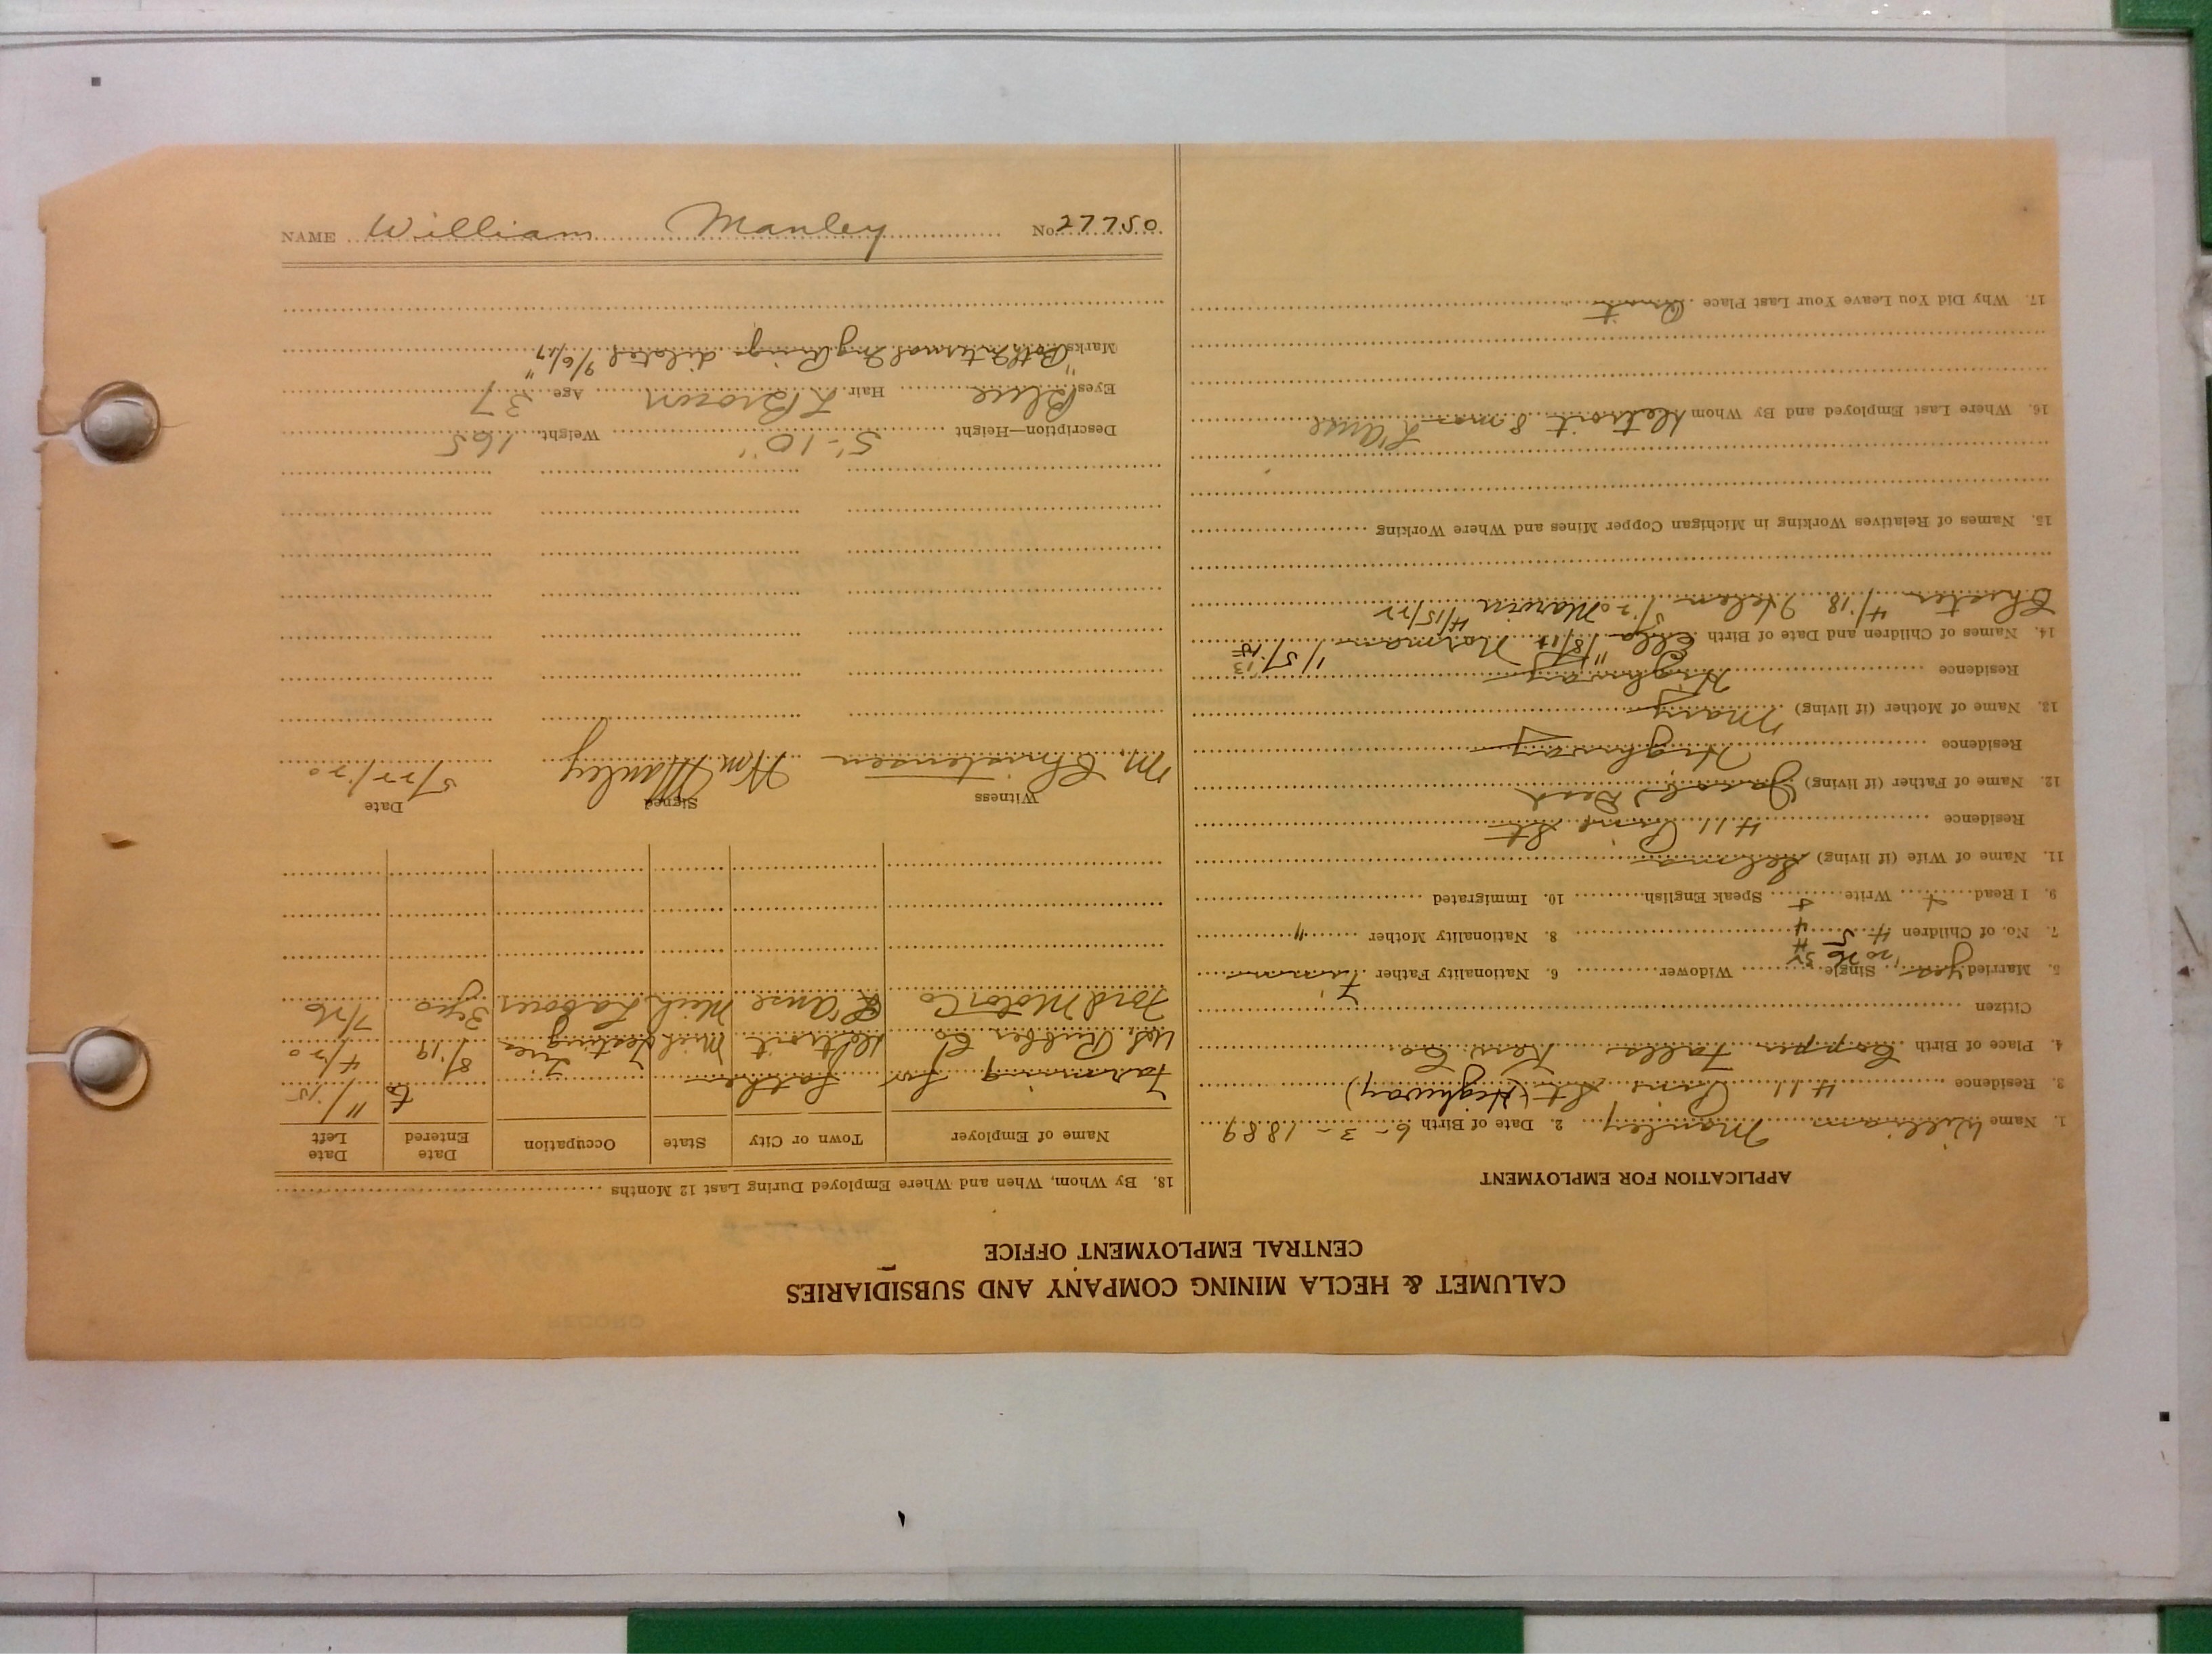 CALUMET & HECLA MINING COMPANY AND SUBSIDIARIES
CENTRAL EMPLOYMENT OFFICE
APPLICATION FOR EMPLOYMENT
1. Name William Manley 2. Date of Birth 6-3-1889
3. Residence 411 Pine St (Highway)
4. Place of Birth Copper Falls Kew. Co.
Citizen
5. Married yes Single Widower 6. Nationality Father Finn
7. No. of Children 4 5 8. Nationality Mother "
9. I Read + Write + Speak English 10. Immigrated
11. Name of Wife (if living) Selma
Residence 411 Pine St
12. Name of Father (if living) Jacob Dead
Residence Highway
13. Name of Mother (if living) Mary
Residence Highway
14. Names of Children and Date of Birth Ella 8/11 Norman 11/5/13
Chester 4/18 Helen 5/20 Marvin 4/15/22
15. Names of Relatives Working in Michigan Copper Mines and Where Working
16. Where Last Employed and By Whom Detroit 8 mos L'Anse
17. Why Did You Leave Your Last Place Quit
18. By Whom, When and Where Employed During Last 12 Months
Name of Employer Town or City State Occupation Date Entered Date Left
Farming for Father to 11/15
U.S. Rubber Co Detroit Mich Testing Tires 8/19 4/20
Ford Motor Co L'Anse Mich Laborer 3 yrs 7/26
Witness Signed Date
M. Christensen Wm Manley 5/22/20
Description—Height 5'-10" Weight 165
Eyes Blue Hair L Brown Age 37
Marks "Both Internal Ing Rings dilated 9/6/27"
NAME William Manley No. 27750